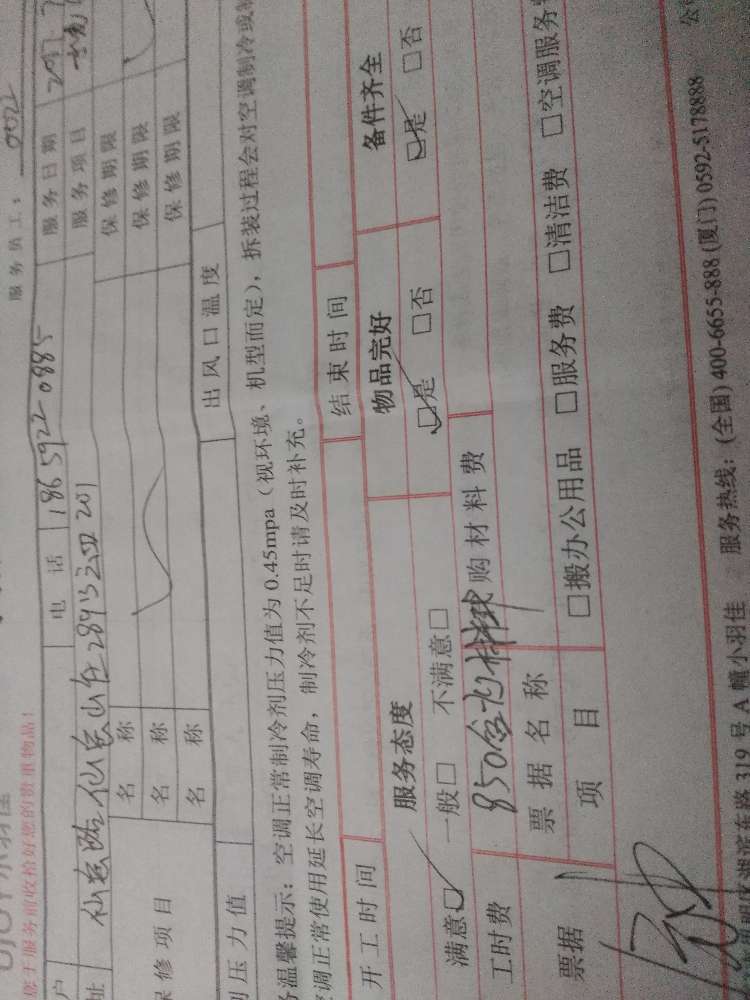 服务员工：0022
小羽佳
您于服务前收检好您的贵重物品！
户 电话 186 5922 0885 服务日期 201
址 仙岳路仙岳山庄 201 服务项目
名称 保修期限
保修项目 名称 保修期限
名称 保修期限
压力值 出风口温度
务温馨提示：空调正常制冷剂压力值为 0.45mpa（视环境、机型而定），拆装过程会对空调制冷或
空调正常使用延长空调寿命，制冷剂不足时请及时补充。
开工时间 结束时间
服务态度 物品完好 备件齐全
满意□ 一般□ 不满意□ □是 □否 □是 □否
工时费 850含材料 购材料费
票据 票据名称
项目 □搬办公用品 □服务费 □清洁费 □空调服务
湖滨东路 319 号 A 幢小羽佳 服务热线：(全国) 400-6655-888 (厦门) 0592-5178888 公